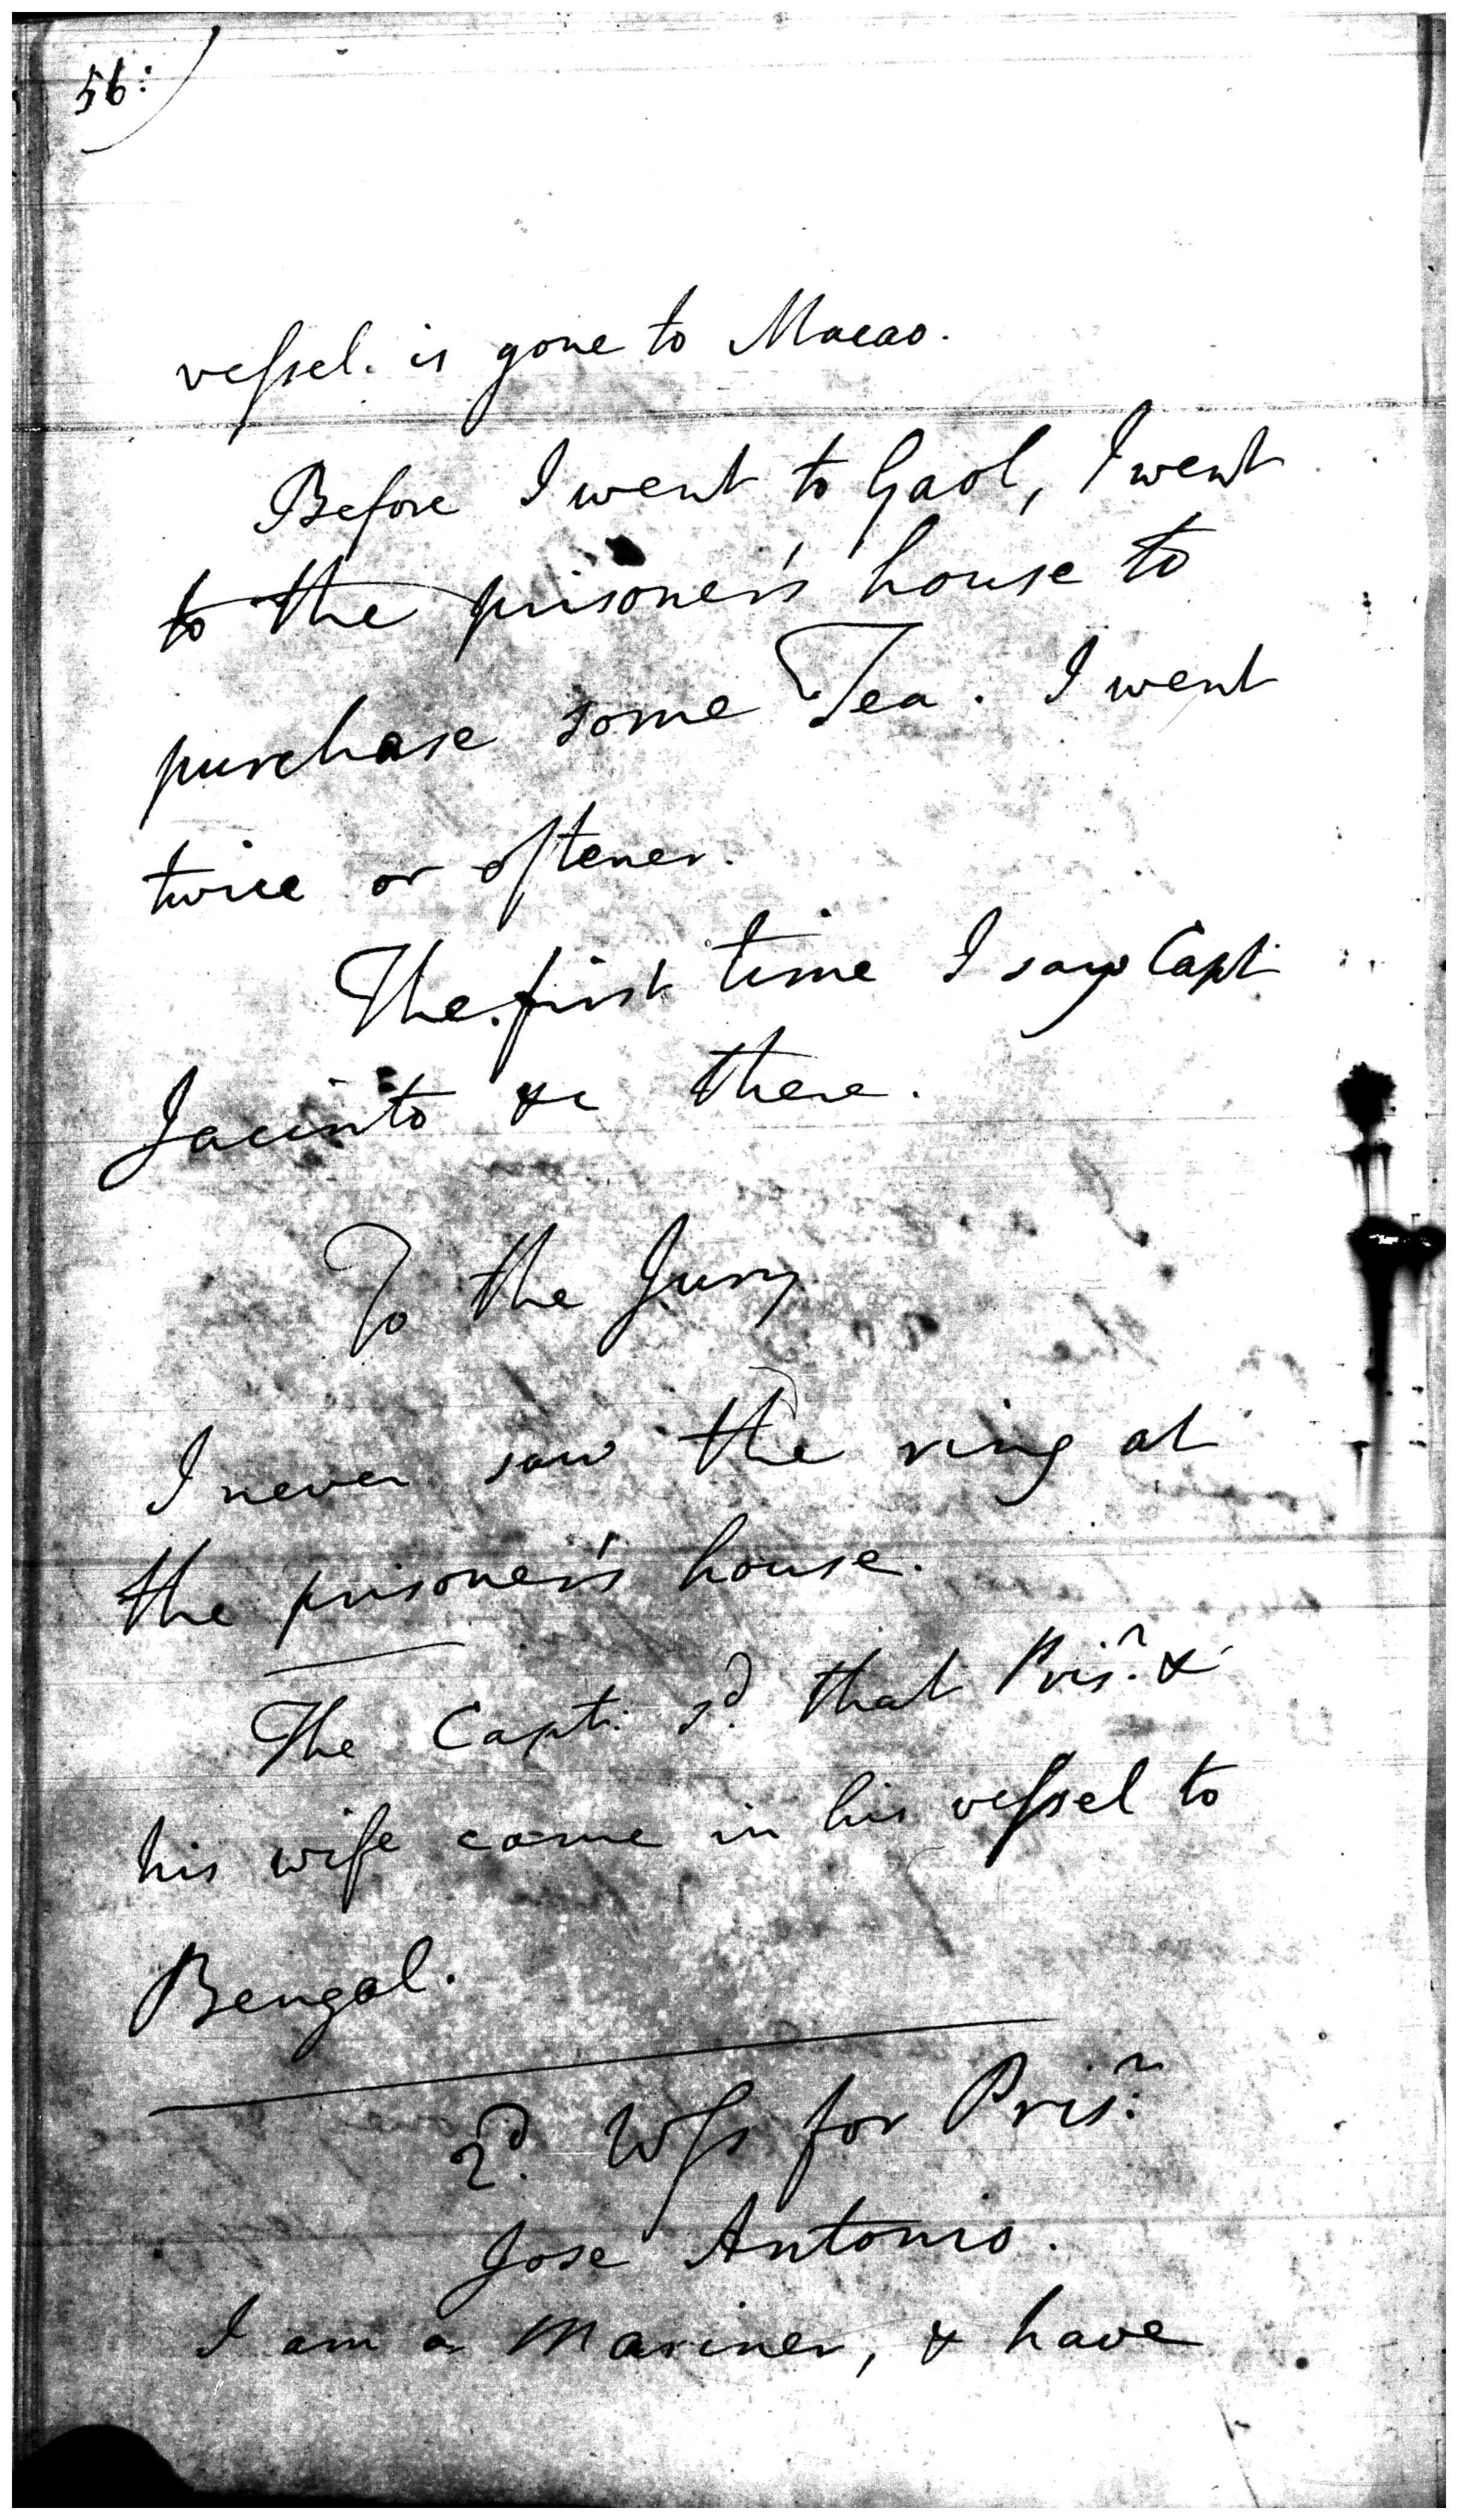 56:
vessel. is gone to Macao.
Before I went to Gaol, I went
to the prisoner's house to
purchase some Tea. I went
twice or oftener.
The first time I saw Capt
Jacinto &c there.
To the Jury
I never saw the ring at
the prisoner's house.
The Capt: sd. that Prisr. &
his wife came in his vessel to
Bengal.
2d. Wss for Prisr.
Jose Antonio.
I am a Mariner, & have